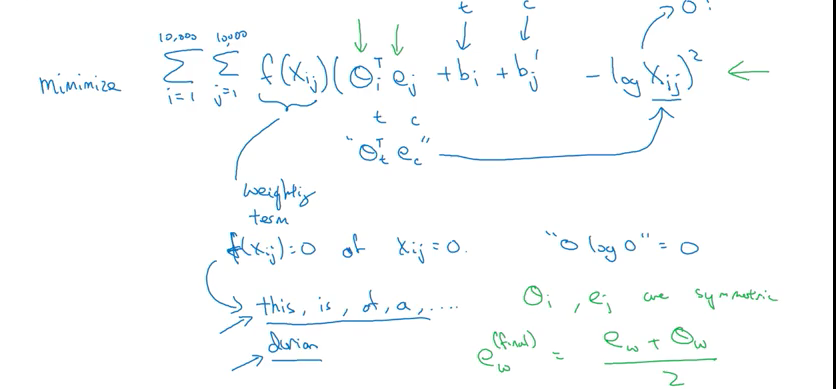 t c 0!
minimize 10,000 Σ i=1 10,000 Σ j=1 f(Xij)(θiᵀ ej + bi + bj′ - log Xij)²
t c
"θtᵀ ec"
weighting
term
f(Xij)=0 if Xij=0. "0 log 0" = 0
this, is, of, a, .... θi, ej are symmetric
durian
ew(final) = ew + θw / 2